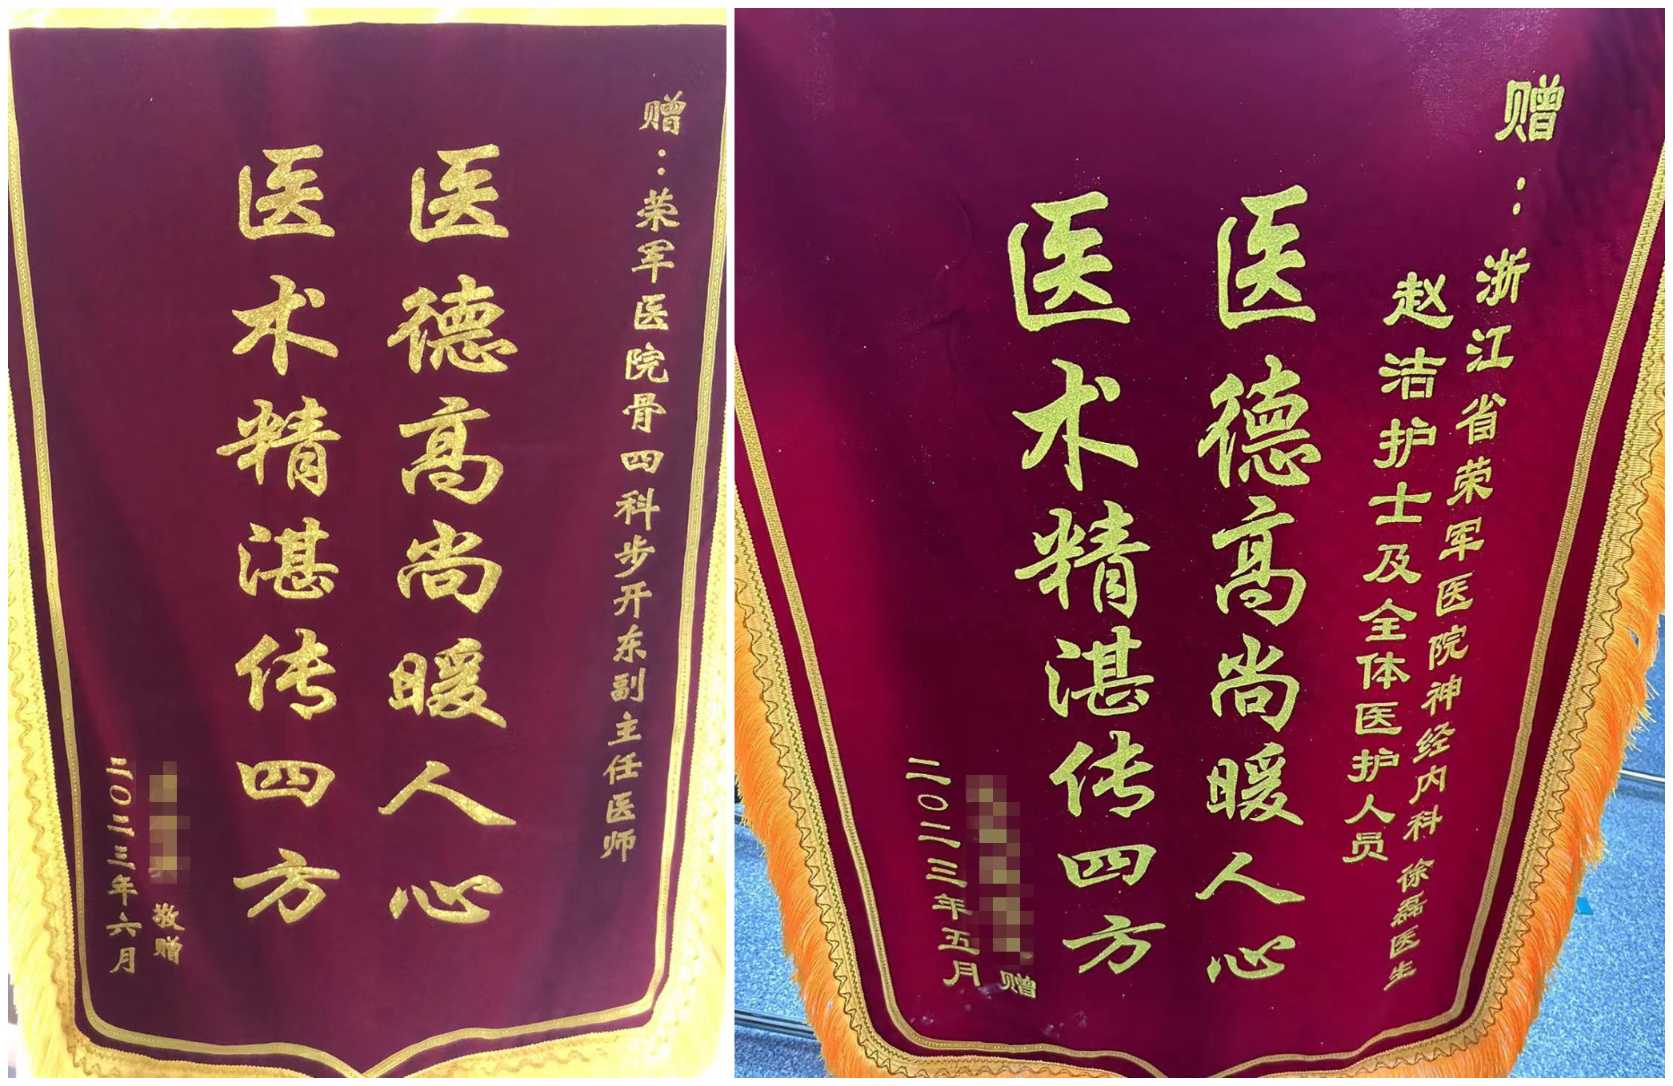 赠：荣军医院骨四科步开东副主任医师
医德高尚暖人心
医术精湛传四方
敬赠
二〇二三年六月
赠：浙江省荣军医院神经内科徐磊医生
赵洁护士及全体医护人员
医德高尚暖人心
医术精湛传四方
赠
二〇二三年五月